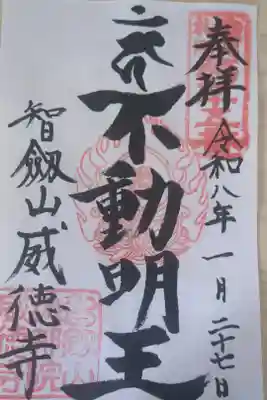 奉拝
令和八年一月二十七日
不動明王
智劔山威徳寺